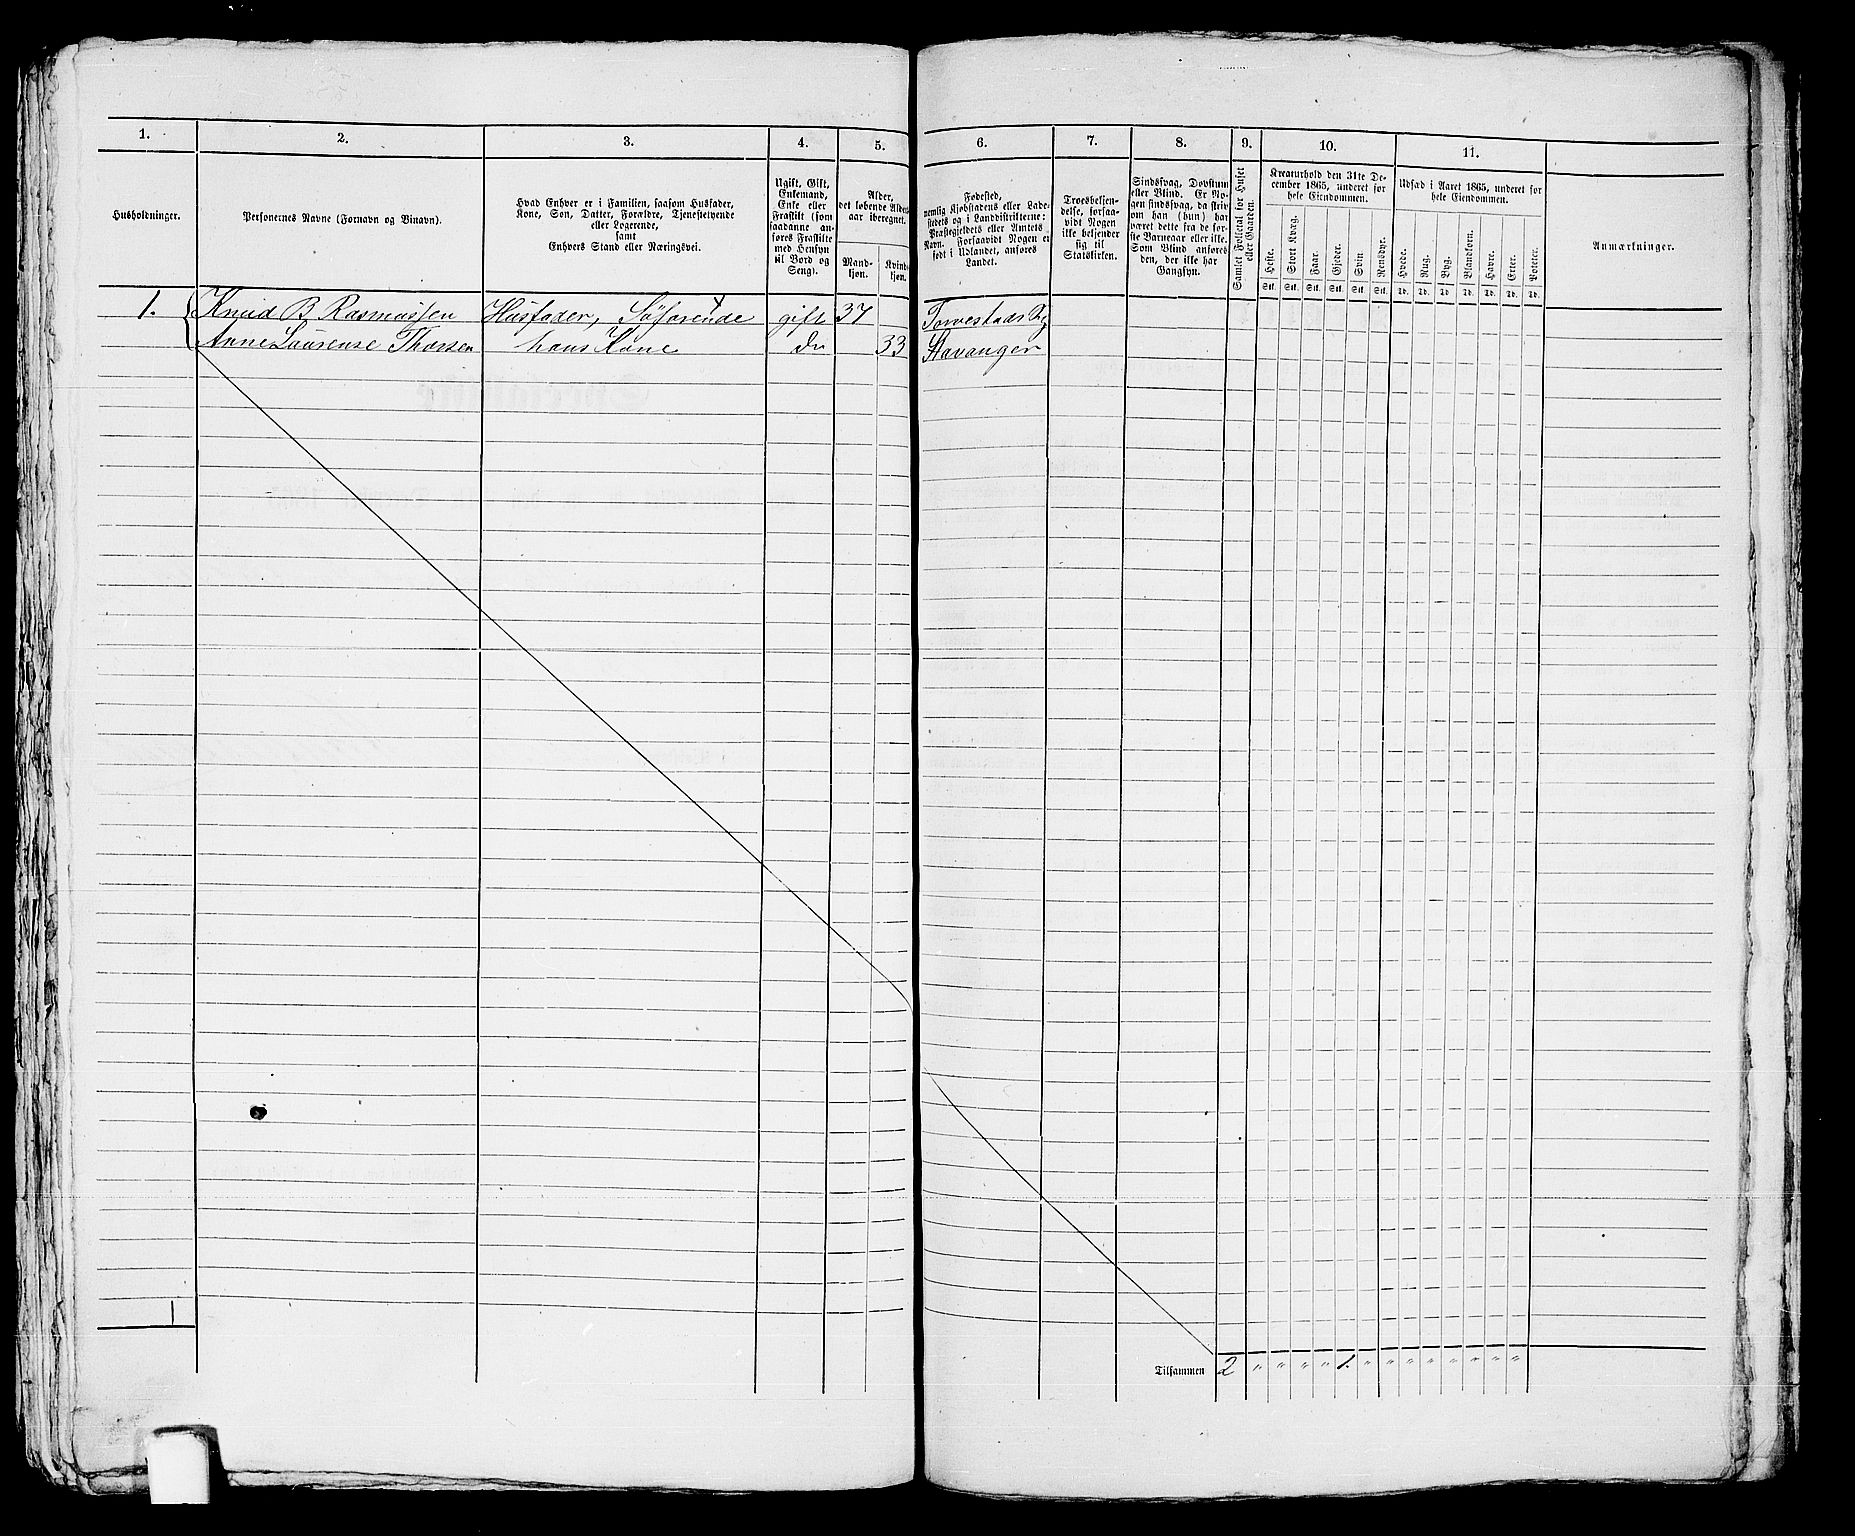 1. 2. 3. 4. 5. 6. 7. 8. 9. 10. 11.
Husholdninger.
Personernes Navne (Fornavn og Binavn).
Hvad Enhver er i Familien, saasom Husfader,
Kone, Søn, Datter, Forældre, Tjenestetyende
eller Logerende,
samt
Enhvers Stand eller Næringsvei.
Ugift, Gift,
Enkemand,
Enke eller
Fraskilt (som
saadanne an-
føres Fraskilte
med Hensyn
til Bord og
Seng).
Alder,
det løbende Alders-
aar iberegnet.
Mand-
kjøn.
Kvinde-
kjøn.
Fødested,
nemlig Kjøbstadens eller Lade-
stedets og i Landdistrikterne:
Præstegjeldets eller Amtets
Navn. Forsaavidt Nogen er
født i Udlandet, anføres
Landet.
Troesbekjen-
delse, forsaa-
vidt Nogen
ikke bekjender
sig til
Statskirken.
Sindssvag, Døvstum
eller Blind. Er No-
gen sindssvag, da skriv
om han (hun) har
været dette fra de før-
ste Barneaar eller ikke.
Som Blind anføres
den, der ikke har
Gangsyn.
Samlet Folketal for Huset
eller Gaarden.
Kreaturhold den 31te De-
cember 1865, underet for
hele Eiendommen.
Heste. Stort Kvæg. Faar. Gjeder. Svin. Rensdyr.
Stk. Stk. Stk. Stk. Stk. Stk.
Udsæd i Aaret 1865, underet for
hele Eiendommen.
Hvede. Rug. Byg. Blandkorn. Havre. Erter. Poteter.
Td. Td. Td. Td. Td. Td. Td.
Anmærkninger.
1. Knud B Rasmussen Husfader, Søfarende gift 37 Torvestads
Anne Laurense Thorsen hans Kone do 33 Stavanger
1
Tilsammen 2 " " " " 1. " " " " " " " "